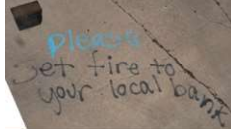 please
set fire to
your local bank